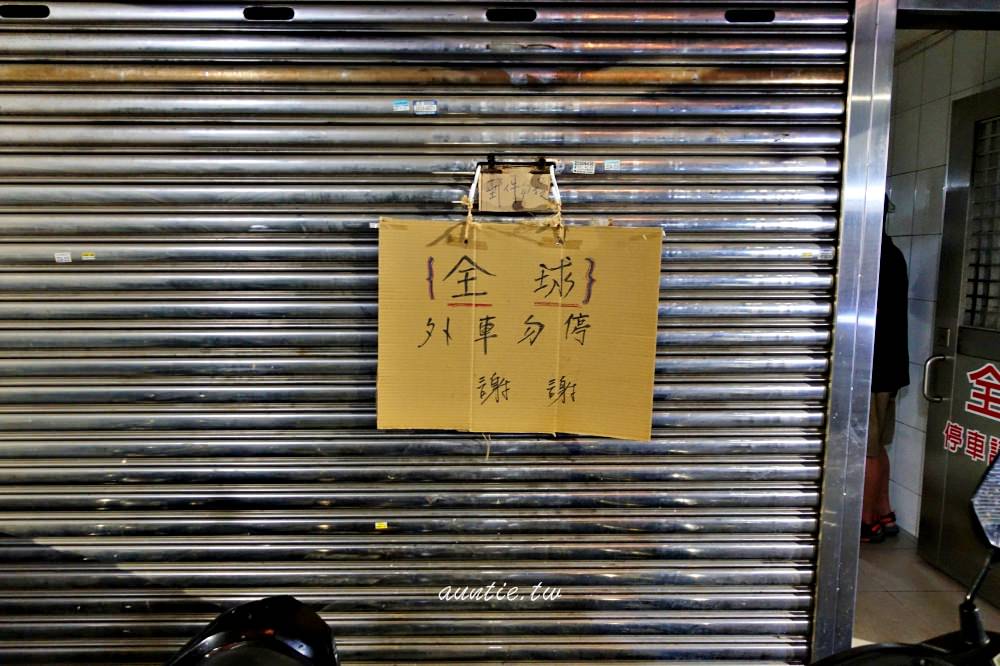 {全 球}
外車勿停
謝 謝
全
停車
auntie.tw